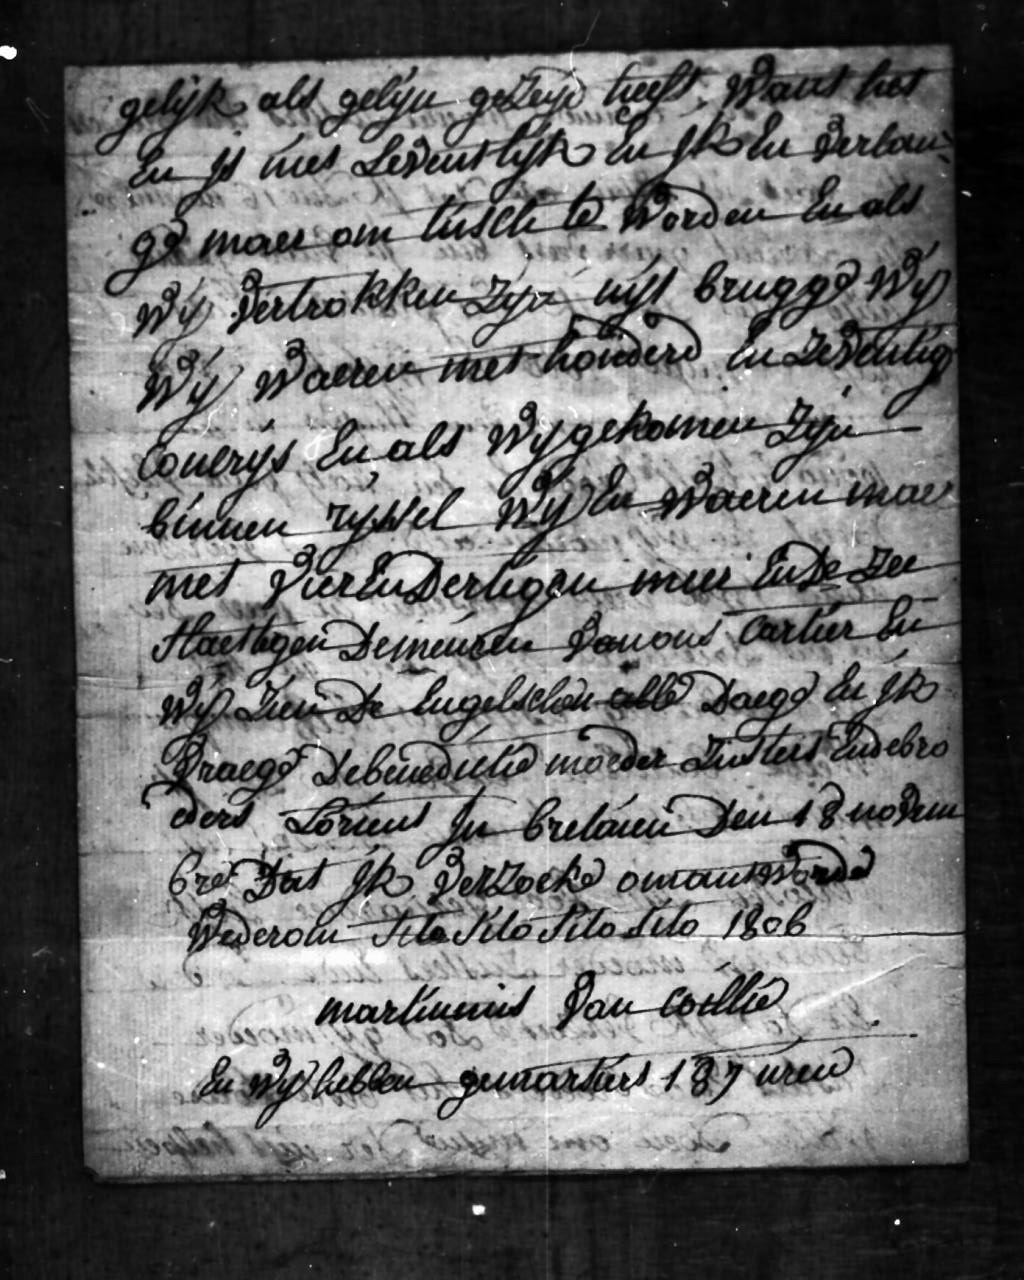 gelijk als gelijn gezeijd heeft Want het
En js niet Levent lijk En jk En verlan
ge maer om tuisch te Worden En als
Wij vertrokken zijn uijt brugge Wij
Wij Waeren met honderd En zeventig
Conerijs En als Wij gekomen zijn
binnen ryssel Wij En Waeren maer
met vier En Dertig en meer En De zee
Haestigen De meinsen van ons cartier En
Wij zien De Engelschen alle Daege En jk
vraege De benedictie moeder zusters En de bro
eders Lorient jn bretanien Den 18 novem
bre Dat jk verzoeke om antworde
Wederom sito sito sito sito 1806
martinnis van coillie
En Wij hebben gemartiert 187 uren